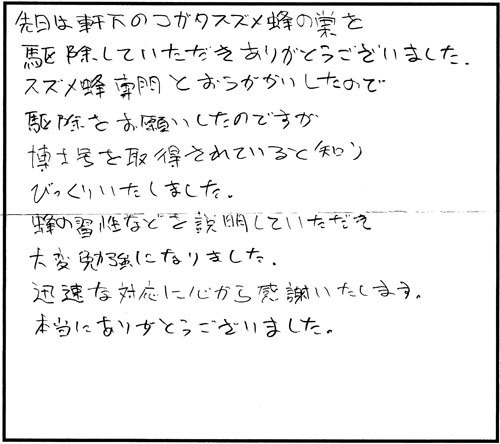 先日は軒下のコガタスズメ蜂の巣を
駆除していただきありがとうございました.
スズメ蜂専門とおうかがいしたので
駆除をお願いしたのですが
博士号を取得されていると知り
びっくりいたしました.
蜂の習性などを説明していただき
大変勉強になりました.
迅速な対応に心から感謝いたします。
本当にありがとうございました。